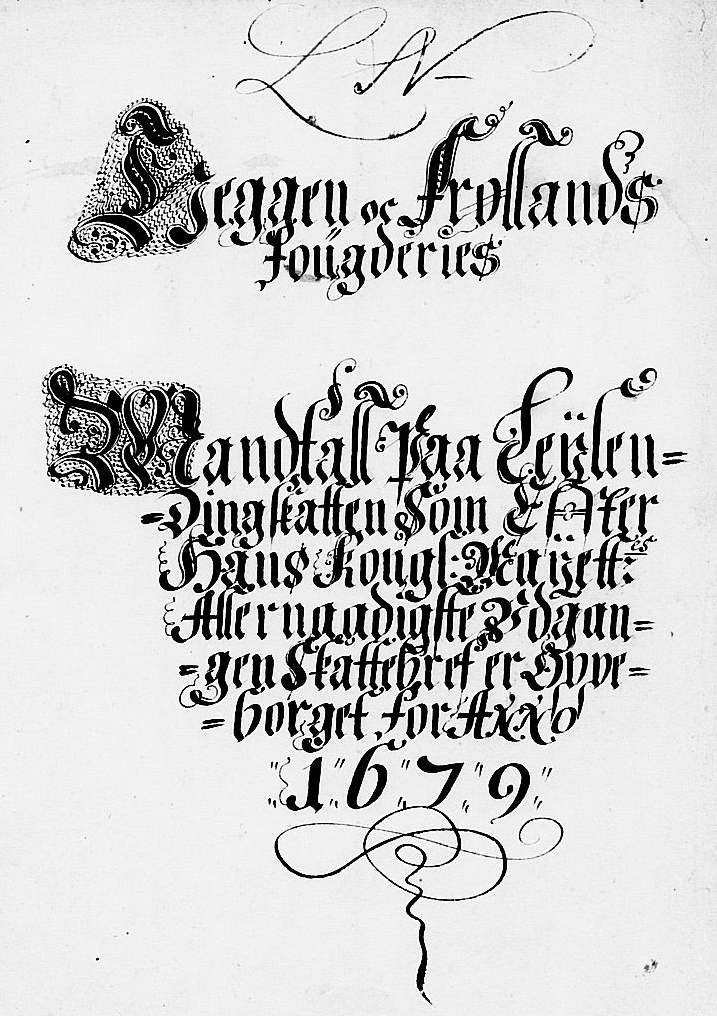 L N
Heggen oc Frøllands
foügderies
Mandtall Paa Leÿlen=
=dingskatten Som Efter
Hans Kongl: Maÿestt:es
Allernaadigste Vdgan=
=gen Skattebref er Oppe=
=borget for Anno
1679